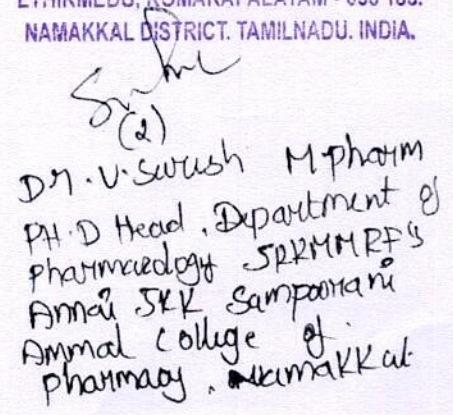 ETHIRMEDU, KOMARAPALAYAM - 638 183.
NAMAKKAL DISTRICT. TAMILNADU. INDIA.
(2)
Dr. V. Suresh M.pharm
PH.D Head, Department of
pharmacology JPKMMRF's
Annai JKK Sampoorani
Ammal College of
pharmacy, Namakkal